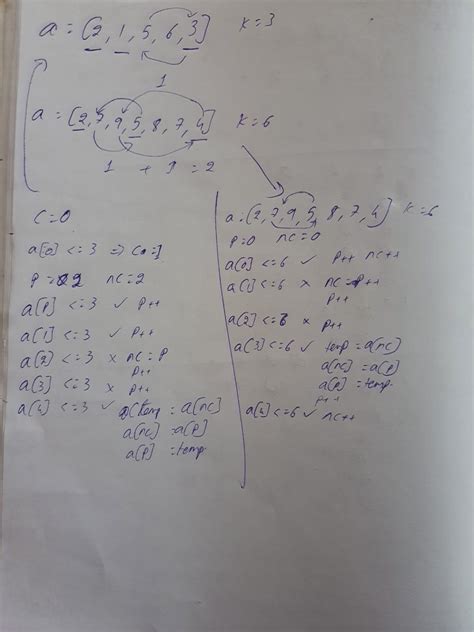 a = [2, 1, 5, 6, 3] K = 3
1
a = [2, 7, 9, 5, 8, 7, 4] K = 6
1 + 1 = 2
C = 0
a[0] <= 3 =>
nc = 2
a[P] <= 3 ✓ P++
a[1] <= 3 ✓ P++
a[2] <= 3 × nc = P
P++
a[3] <= 3 × P++
a[4] <= 3 ✓ temp = a[nc]
a[nc] = a[P]
a[P] = temp
a = [2, 7, 9, 5, 8, 7, 4] K = 6
P = 0 nc = 0
a[0] <= 6 ✓ P++ nc++
a[1] <= 6 ×
P++
a[2] <= 6 × P++
a[3] <= 6 ✓ temp = a[nc]
a[nc] = a[P]
a[P] = temp
P++
a[4] <= 6 ✓ nc++